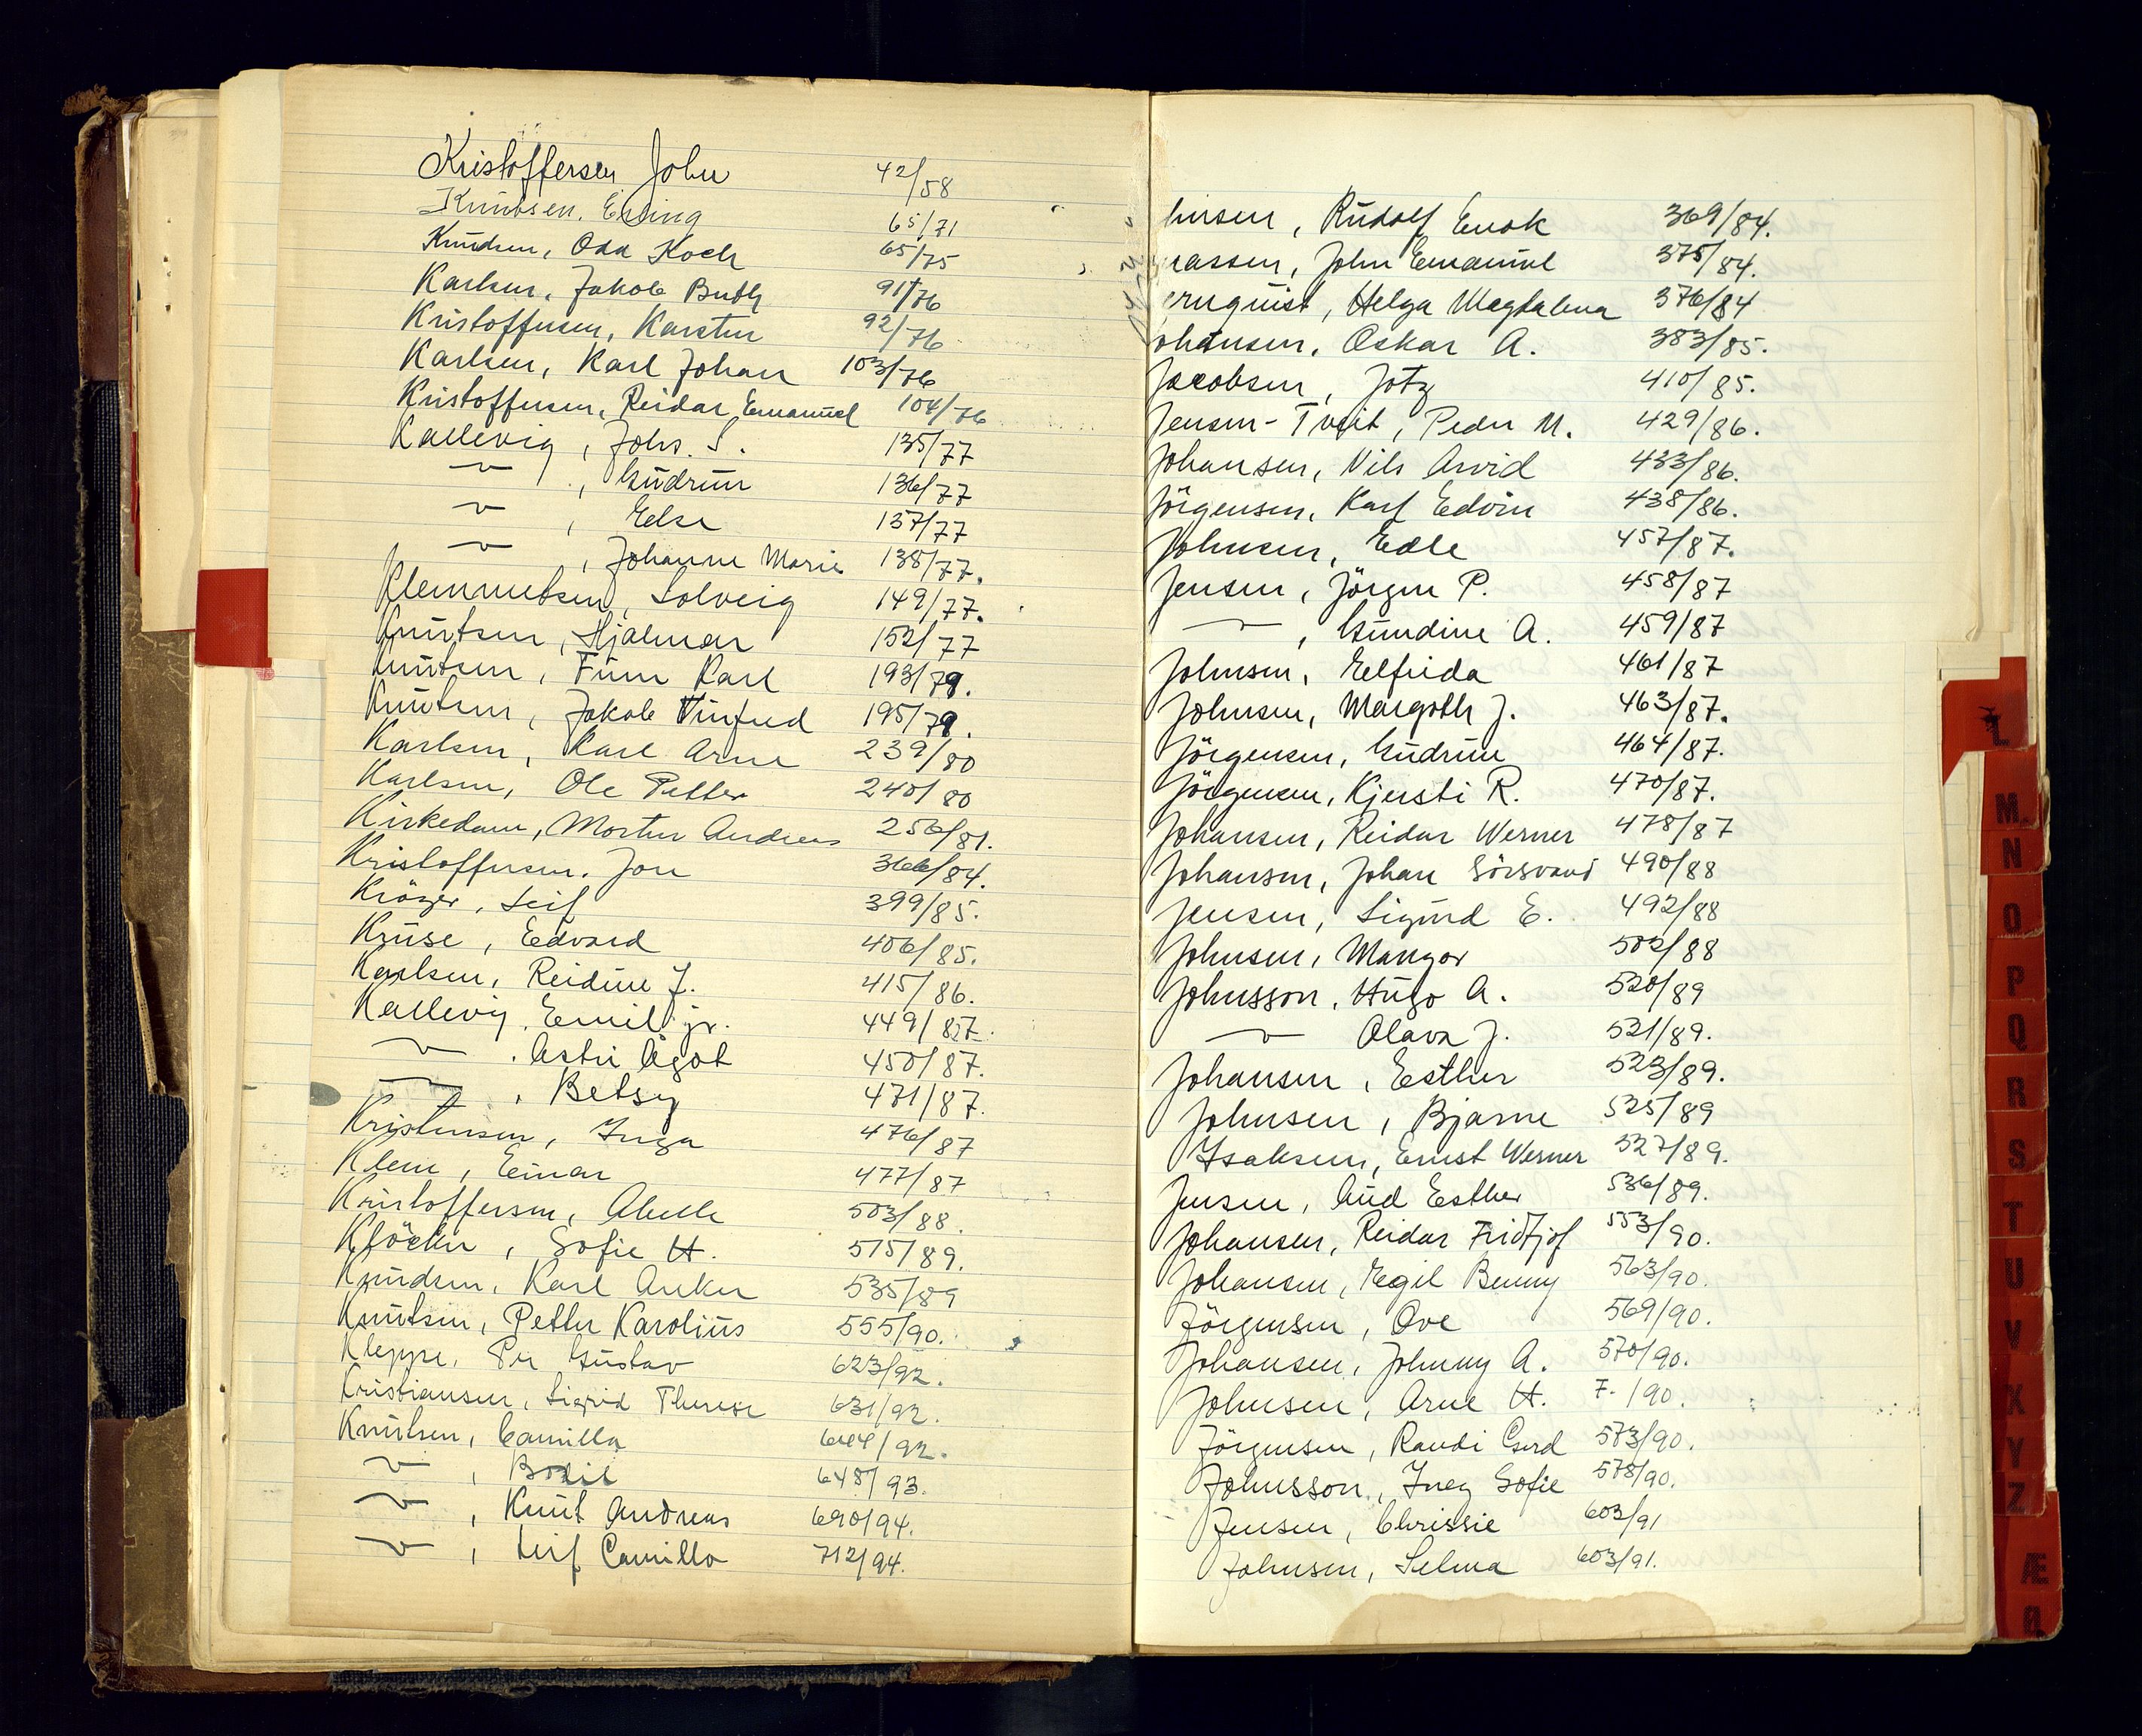 Kristoffersen John 42/58
Knudsen, Erling 65/71
Knudsen, Odd Koch 65/75
Karlsen, Jakob Buth 91/76
Kristoffersen, Karsten 92/76
Karlsen, Karl Johan 103/76
Kristoffersen, Reidar Emanuel 104/76
Kallevig, Johs. S. 135/77
— , Gudrun 136/77
— , Else 137/77
— , Johanne Marie 138/77.
Klemmetsen, Solveig 149/77.
Knutsen, Hjalmar 152/77
Knutsen, Finn Karl 193/79.
Knutsen, Jakob Vinfred 195/79.
Karlsen, Karl Arne 239/80
Karlsen, Ole Petter 240/80
Kirkedam, Morten Andreas 256/81.
Kristoffersen, Jon 366/84.
Kröger, Leif 399/85.
Kruse, Edvard 406/85.
Karlsen, Reidun J. 415/86.
Kallevig, Emil jr. 449/87.
— , Astri Ågot 450/87.
— , Betsy 471/87.
Kristensen, Inga 476/87
Klem, Einar 477/87
Kristoffersen, Abelle 503/88.
Klöcker, Sofie H. 515/89.
Knudsen, Karl Anker 535/89
Knutsen, Petter Karolius 555/90.
Kleppe, Per Gustav 623/92.
Kristiansen, Sigrid Therese 631/92.
Knutsen, Camilla 644/92.
— , Bodil 648/93.
— , Knut Andreas 690/94.
— , Leif Camillo 712/94.
hnsen, Rudolf Enok 369/84.
nassen, John Emanuel 375/84.
ernquist, Helga Magdalena 376/84
ohansen, Oskar A. 383/85.
Jacobsen, Jotz 410/85.
Jensen-Tveit, Peder M. 429/86.
Johansen, Nils Arvid 433/86.
Jörgensen, Karl Edvin 438/86.
Johnsen, Edle 457/87.
Jensen, Jörgen P. 458/87
— , Gundine A. 459/87
Johnsen, Elfrida 461/87
Johnsen, Margoth J. 463/87.
Jörgensen, Gudrun 464/87.
Jörgensen, Kjersti R. 470/87.
Johansen, Reidar Werner 478/87
Johansen, Johan Sörsvand 490/88
Jensen, Sigurd E. 492/88
Johnsen, Mangor 502/88
Johnsson, Hugo A. 520/89
— Olava J. 521/89.
Johansen, Esther 523/89.
Johnsen, Bjarne 525/89
Isaksen, Ernst Werner 527/89.
Jensen, Aud Esther 536/89.
Johansen, Reidar Fridtjof 553/90.
Johansen, Egil Benny 563/90.
Jörgensen, Ove 569/90.
Johansen, Johnny A. 570/90.
Johnsen, Arne H. 7. /90.
Jörgensen, Randi Gerd 573/90.
Johnsson, Iney Sofie 578/90.
Jensen, Chrissie 603/91
Johnsen, Selma 603/91.
L
M
N
O
P
Q
R
S
T
U
V
X
Y
Z
Æ
Ø